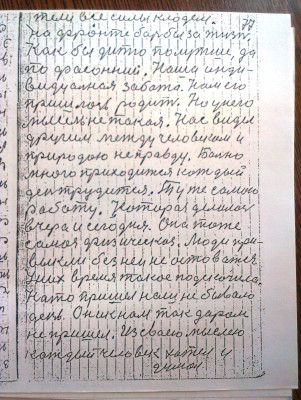 тели все силы кладем. 79
на фронте борьбы за жизн.
Как бы дитю получше, да
по фасонний. Наша инди-
видуалная забота. Нам его
пришлось родит. Но у него
мысель не такая. Нас видел
другим между человеком и
природою неправду. Болно
много приходится каждый
ден трудится. Ту те самою
работу. Которая делалас
вчера и сегодня. Она тоже
самая физическая. Люди при-
выкли без ней не остоватся.
У них время такое подскочила.
Како пришел нам не бывало
ден. Он и к нам так даром
не пришел. Из своею мыслею
каждый человек хотел и